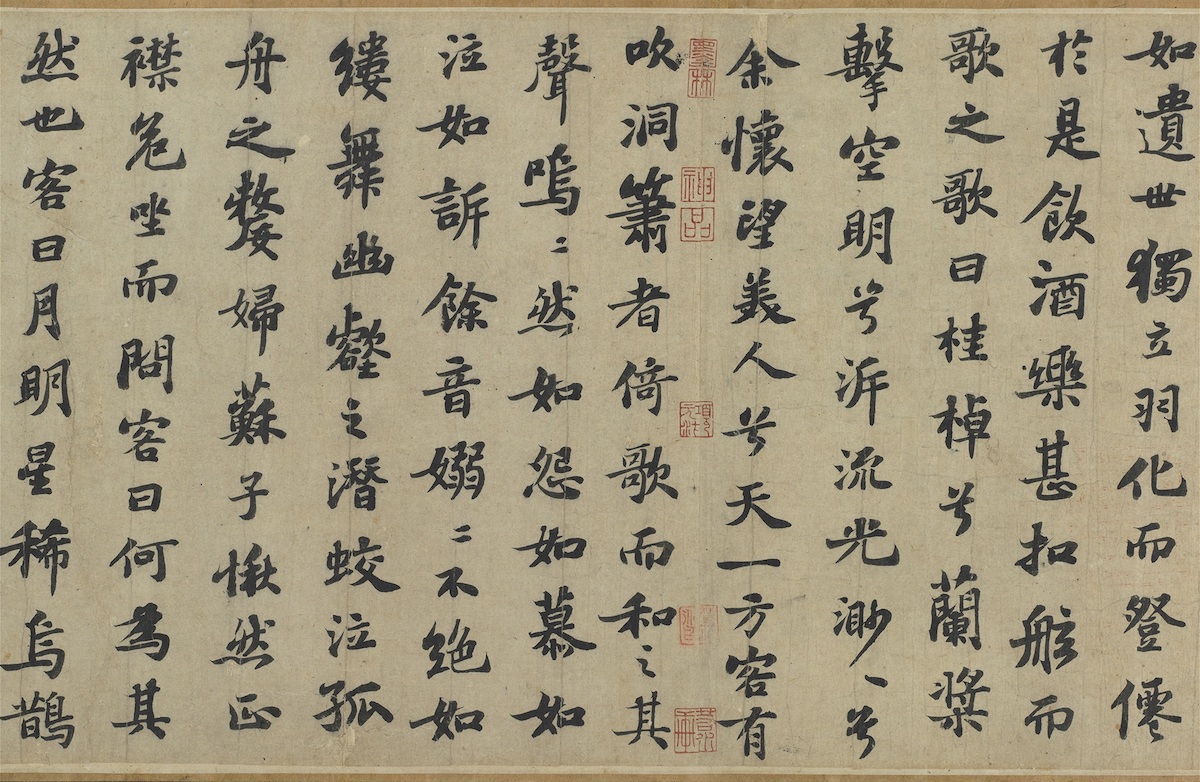 如遺世獨立羽化而登僊
於是飲酒樂甚扣舷而
歌之歌曰桂棹兮蘭槳
擊空明兮泝流光渺〻兮
余懷望美人兮天一方客有
吹洞簫者倚歌而和之其
聲嗚〻然如怨如慕如
泣如訴餘音嫋〻不絶如
縷舞幽壑之潛蛟泣孤
舟之嫠婦蘇子愀然正
襟危坐而問客曰何為其
然也客曰月明星稀烏鵲
墨林
神品